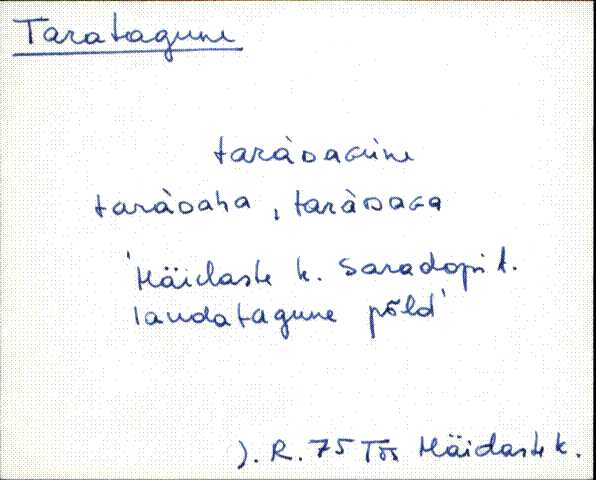 Taratagune
taràᴅaɢune
taràᴅaha, taràᴅaɢa
'Häidaste k. Saradopi t.
laudatagune põld'
J. R. 75 Tõs Häidaste k.